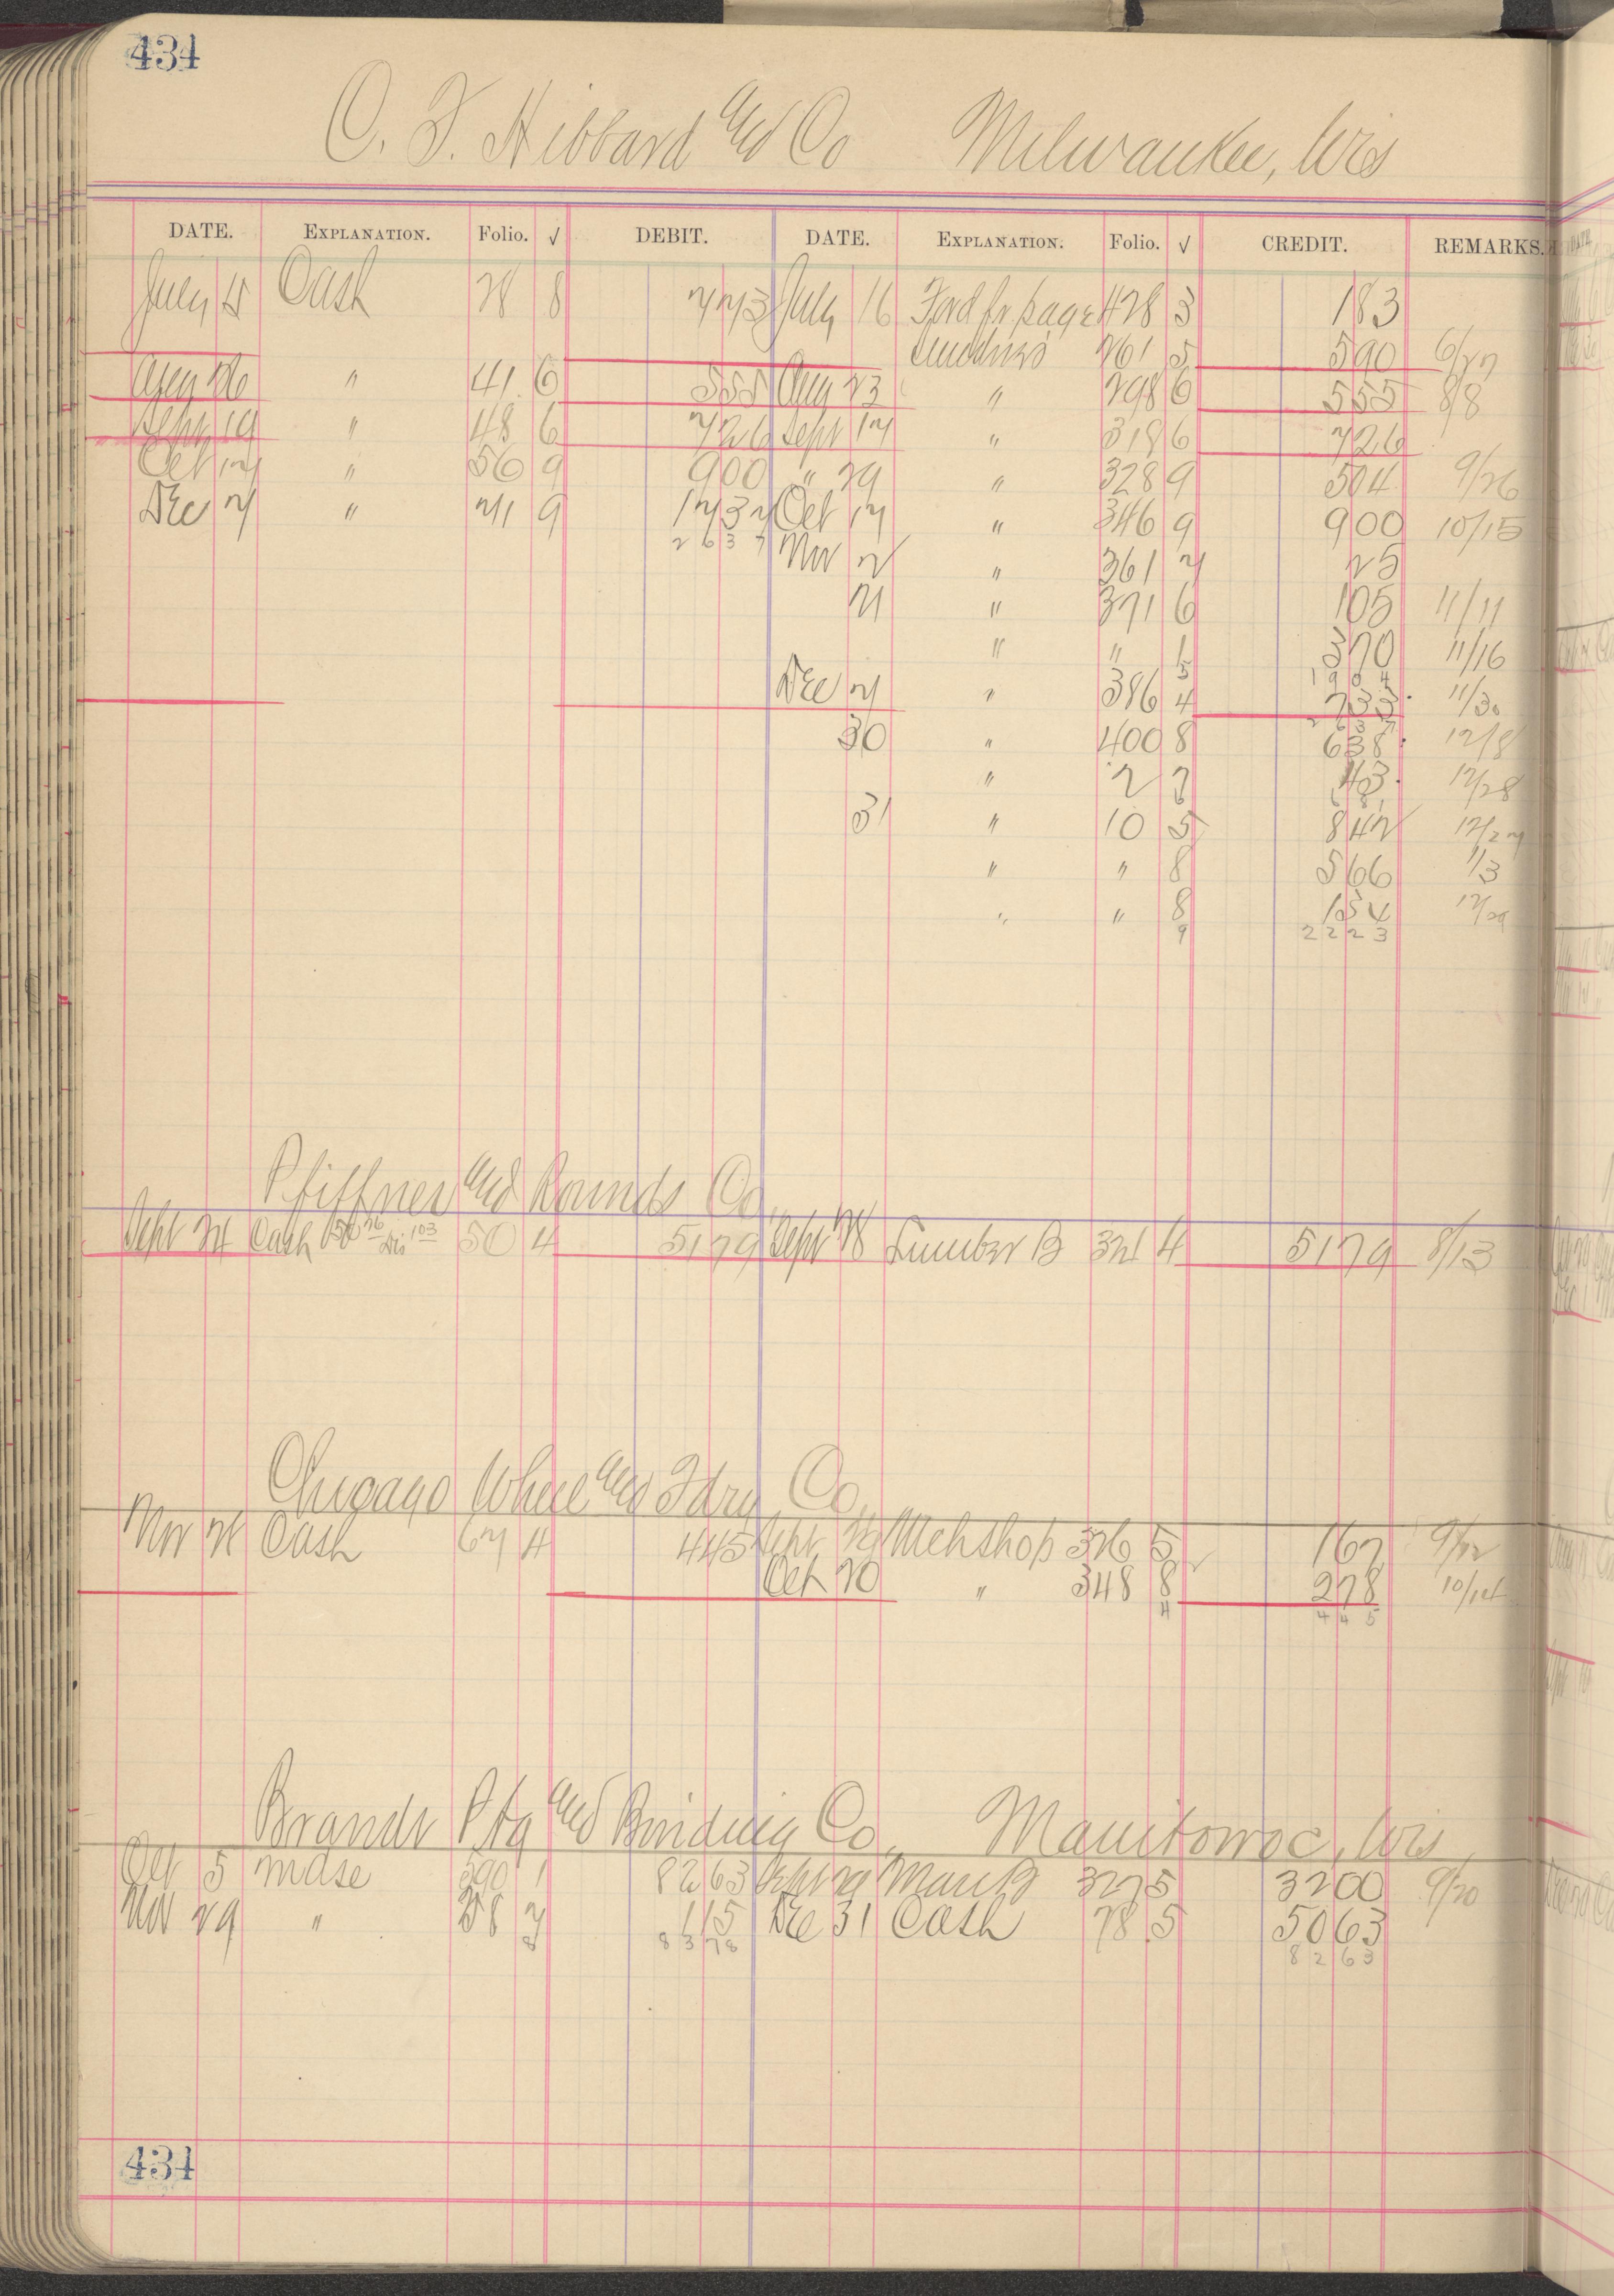 434
C. F. Hibbard and Co Milwaukee, Wis
DATE. EXPLANATION. Folio. √ DEBIT. DATE. EXPLANATION. Folio. √ CREDIT. REMARKS.
July 15 Cash 28 8 773 July 16 Ford fr page 428 3 183
Sundries 261 5 590 6/27
Aug 26 " 41 6 555 Aug 23 " 298 6 555 8/8
Sept 19 " 48 6 726 Sept 17 " 318 6 726
Oct 17 " 56 9 900 " 29 " 328 9 504 9/26
Dec 7 " 71 9 1737 Oct 17 " 346 9 900 10/15
2637 Nov 2 " 361 7 25
21 " 371 6 105 11/11
" " 1 370 11/16
5 1904
Dec 7 " 386 4 733 11/30
2637
30 " 400 8 638 12/8
" 2 7 43 12/28
6 681
31 " 10 5 842 12/27
" " 8 566 1/3
" " 8 134 12/29
9 2223
Pfiffner and Rounds Co.
Sept 24 Cash 50 76 Dis 1 03 50 4 5179 Sept 28 Lumber B 321 4 5179 8/13
Chicago Wheel and Fdry Co.
Nov 26 Cash 67 4 445 Sept 29 Mchshop 326 5 167 9/12
Oct 20 " 348 8 278 10/14
4 445
Brandt Ptg and Binding Co., Manitowoc, Wis
Oct 5 Mdse 390 1 8263 Sept 29 Man B 327 5 3200 9/20
Nov 29 " 38 7 115 Dec 31 Cash 78 5 5063
8 8378 8263
434